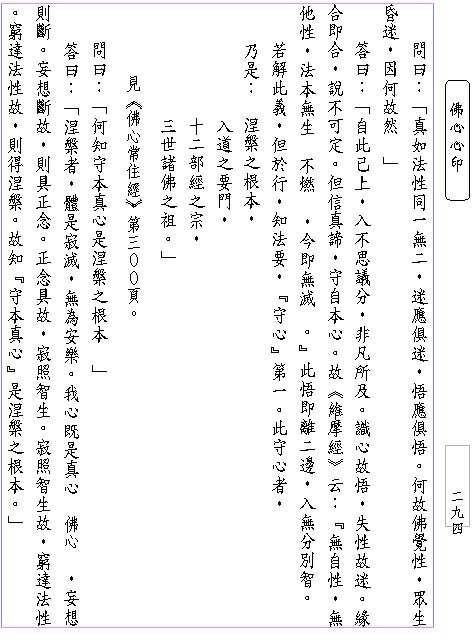 佛心心印
二九四
問曰：「真如法性同一無二，迷應俱迷，悟應俱悟。何故佛覺性，眾生
昏迷，因何故然　」
答曰：「自此已上，入不思議分，非凡所及。識心故悟，失性故迷。緣
合即合，說不可定。但信真諦，守自本心。故《維摩經》云：『無自性，無
他性，法本無生　不燃　，今即無滅　。』此悟即離二邊，入無分別智。
若解此義，但於行，知法要，『守心』第一。此守心者，
乃是：　涅槃之根本，
入道之要門，
十二部經之宗，
三世諸佛之祖。」
見《佛心常住經》第三００頁。
問曰：「何知守本真心是涅槃之根本　」
答曰：「涅槃者，體是寂滅，無為安樂。我心既是真心　佛心　，妄想
則斷。妄想斷故，則具正念。正念具故，寂照智生。寂照智生故，窮達法性
。窮達法性故，則得涅槃。故知『守本真心』是涅槃之根本。」